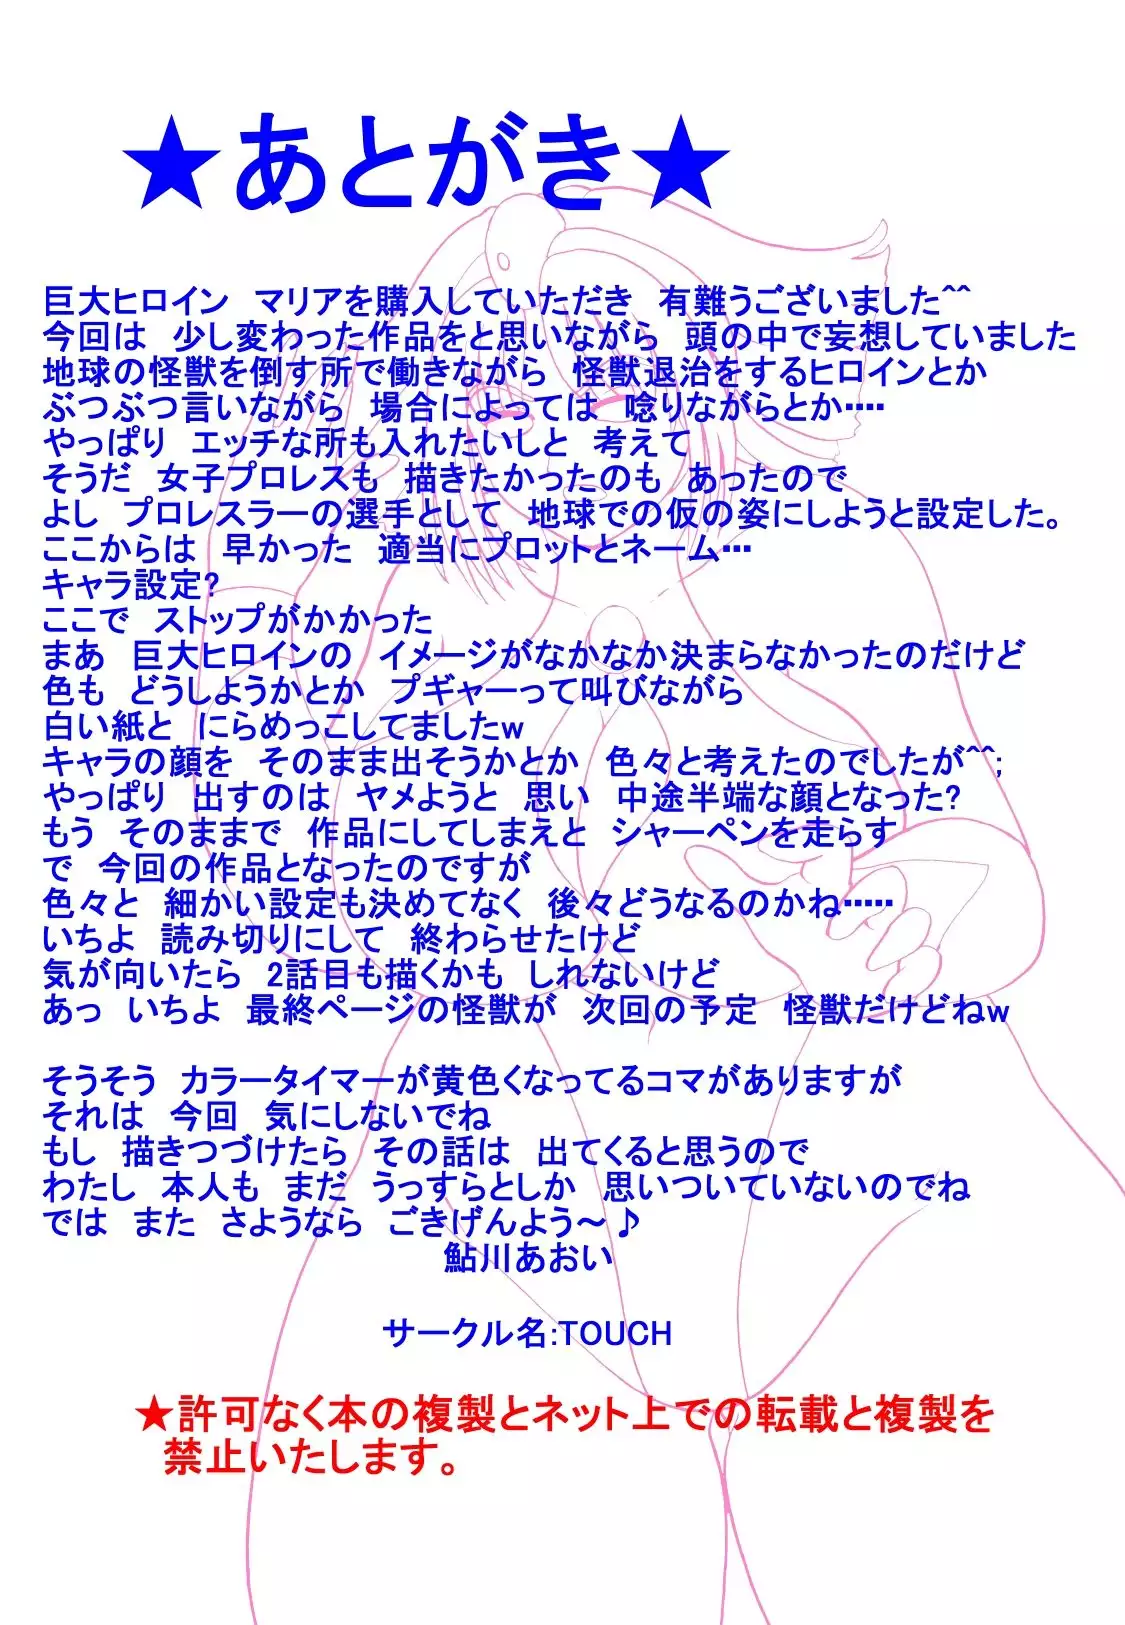 ★あとがき★
巨大ヒロイン　マリアを購入していただき　有難うございました^^
今回は　少し変わった作品をと思いながら　頭の中で妄想していました
地球の怪獣を倒す所で働きながら　怪獣退治をするヒロインとか
ぶつぶつ言いながら　場合によっては　唸りながらとか‥‥
やっぱり　エッチな所も入れたいしと　考えて
そうだ　女子プロレスも　描きたかったのも　あったので
よし　プロレスラーの選手として　地球での仮の姿にしようと設定した。
ここからは　早かった　適当にプロットとネーム…
キャラ設定?
ここで　ストップがかかった
まあ　巨大ヒロインの　イメージがなかなか決まらなかったのだけど
色も　どうしようかとか　プギャーって叫びながら
白い紙と　にらめっこしてましたw
キャラの顔を　そのまま出そうかとか　色々と考えたのでしたが^^;
やっぱり　出すのは　ヤメようと　思い　中途半端な顔となった?
もう　そのままで　作品にしてしまえと　シャーペンを走らす
で　今回の作品となったのですが
色々と　細かい設定も決めてなく　後々どうなるのかね‥‥‥
いちよ　読み切りにして　終わらせたけど
気が向いたら　2話目も描くかも　しれないけど
あっ　いちよ　最終ページの怪獣が　次回の予定　怪獣だけどねw
そうそう　カラータイマーが黄色くなってるコマがありますが
それは　今回　気にしないでね
もし　描きつづけたら　その話は　出てくると思うので
わたし　本人も　まだ　うっすらとしか　思いついていないのでね
では　また　さようなら　ごきげんよう～♪
鮎川あおい
サークル名:TOUCH
★許可なく本の複製とネット上での転載と複製を
禁止いたします。